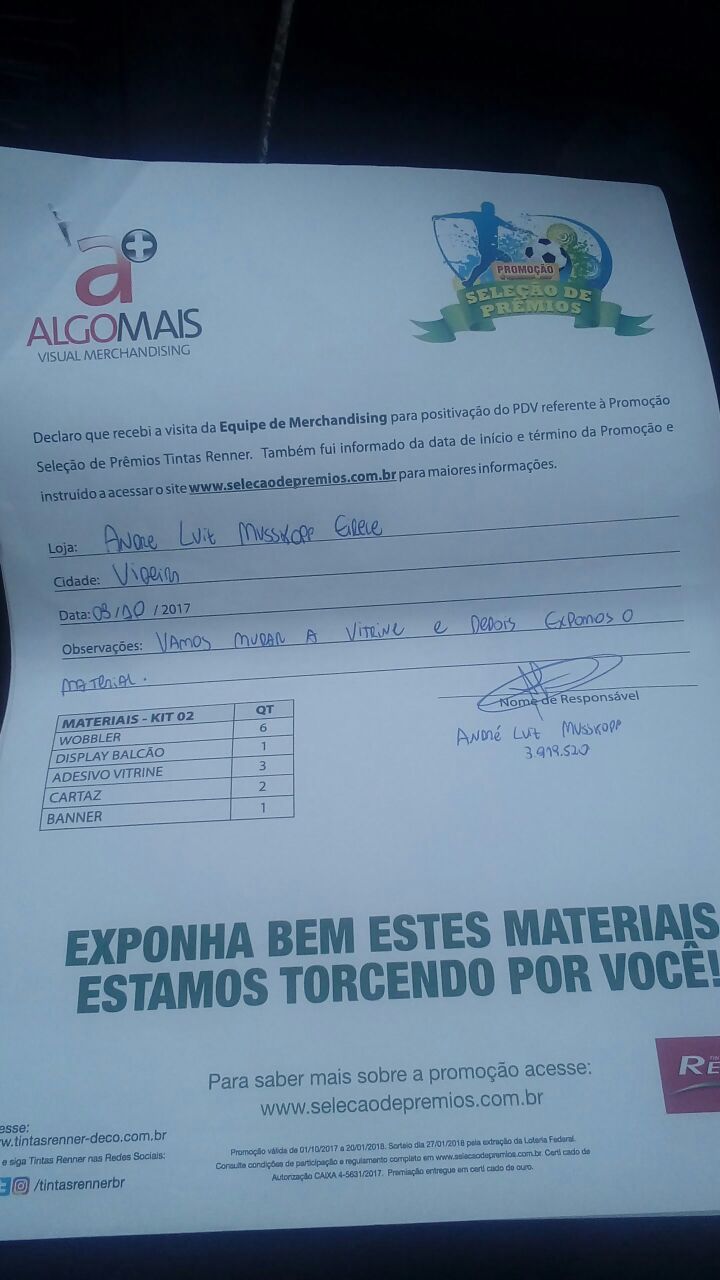 a+
ALGOMAIS
VISUAL MERCHANDISING
PROMOÇÃO
SELEÇÃO DE
PRÊMIOS
Declaro que recebi a visita da Equipe de Merchandising para positivação do PDV referente à Promoção
Seleção de Prêmios Tintas Renner. Também fui informado da data de início e término da Promoção e
instruído a acessar o site www.selecaodepremios.com.br para maiores informações.
Loja: ANDRE LUIZ MUSSKOPP EIRELE
Cidade: VIDEIRA
Data: 03/10 / 2017
Observações: VAMOS MUDAR A VITRINE E DEPOIS EXPOMOS O
MATERIAL.
Nome de Responsável
ANDRÉ LUIZ MUSSKOPP
3.919.520
MATERIAIS - KIT 02 QT
WOBBLER 6
DISPLAY BALCÃO 1
ADESIVO VITRINE 3
CARTAZ 2
BANNER 1
EXPONHA BEM ESTES MATERIAIS
ESTAMOS TORCENDO POR VOCÊ!
Para saber mais sobre a promoção acesse:
www.selecaodepremios.com.br
esse:
w.tintasrenner-deco.com.br
e siga Tintas Renner nas Redes Sociais:
/tintasrennerbr
TIN
RE
Promoção válida de 01/10/2017 a 20/01/2018. Sorteio dia 27/01/2018 pela extração da Loteria Federal.
Consulte condições de participação e regulamento completo em www.selecaodepremios.com.br. Certificado de
Autorização CAIXA 4-5631/2017. Premiação entregue em certificado de ouro.